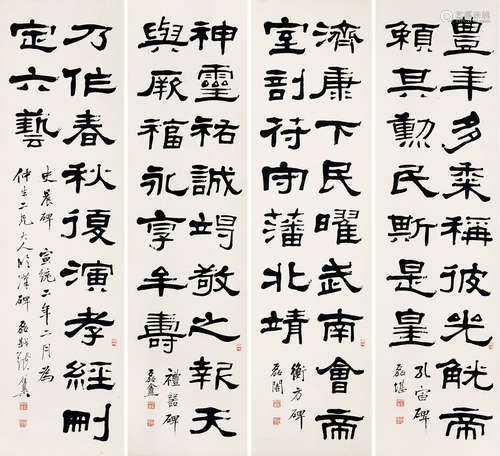 豐年多黍稱彼兕觥帝
賴其勳民斯是皇
孔宙碑
濟康下民曜武南會帝
室剖符守藩北靖
衡方碑
神靈祐誠竭敬之報天
與厥福永享牟壽
禮器碑
磊盦
乃作春秋復演孝經刪
定六藝
史晨碑 宣統二年二月為
仲生二兄大人臨漢碑